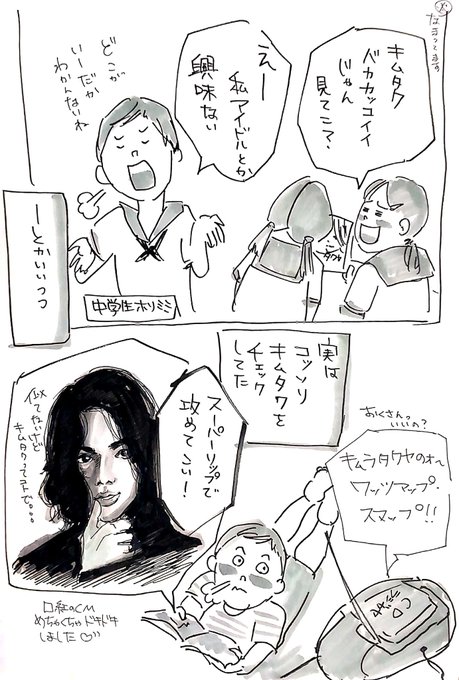 ※
なまってます
キムタク
バカカッコイイ
じゃん
見てこ?
えー
私アイドルとか
興味ない
どこが
いーだか
わかんないね
中学生ホリミミ
ーとかいいつつ
実は
コッソリ
キムタクを
チェック
してた
スーパーリップで
攻めてこい!
似てないけど
キムタクってコトで。。。
口紅のCM
めちゃくちゃドキドキ
しました♡
おくさんっ
いいの?
キムラタクヤのォ〜
ワッツマップ・
スマップ!!